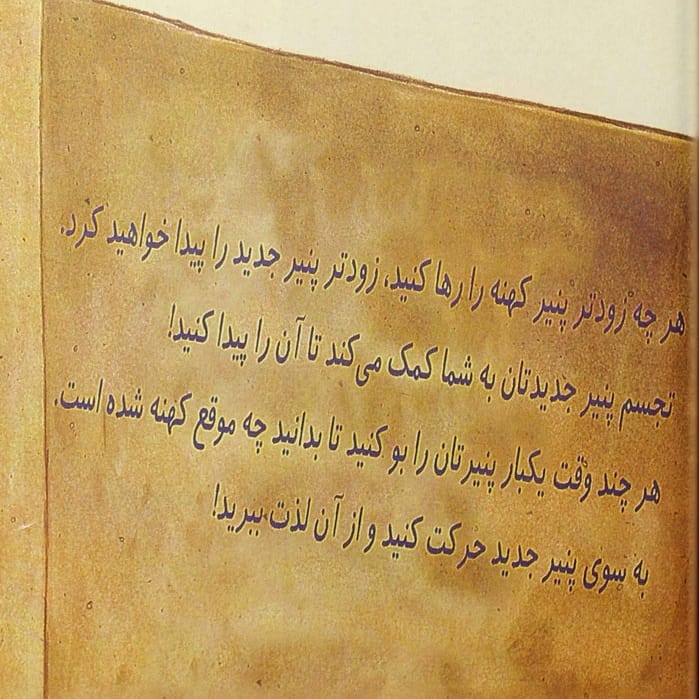 هر چه زودتر پنیر کهنه را رها کنید، زودتر پنیر جدید را پیدا خواهید کرد.
تجسم پنیر جدیدتان به شما کمک می‌کند تا آن را پیدا کنید!
هر چند وقت یکبار پنیرتان را بو کنید تا بدانید چه موقع کهنه شده است.
به سوی پنیر جدید حرکت کنید و از آن لذت ببرید!